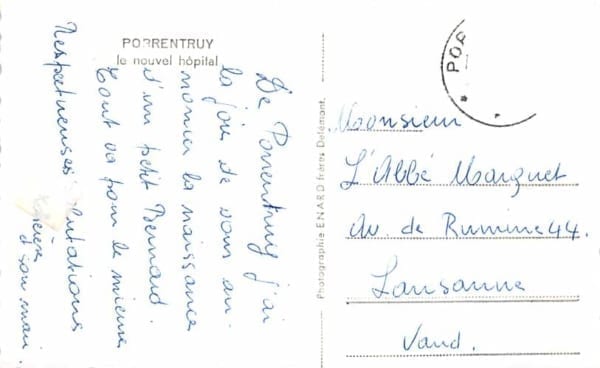 PORRENTRUY
le nouvel hôpital
De Porrentruy j'ai
la joie de vous an-
noncer la naissance
d'un petit Bernard.
Tout va pour le mieux
Respectueuses
et son mari
Photographie ENARD frères Delémont.
POR
Monsieur
L'Abbé Marquet
Av. de Rumine 44.
Lausanne
Vaud.